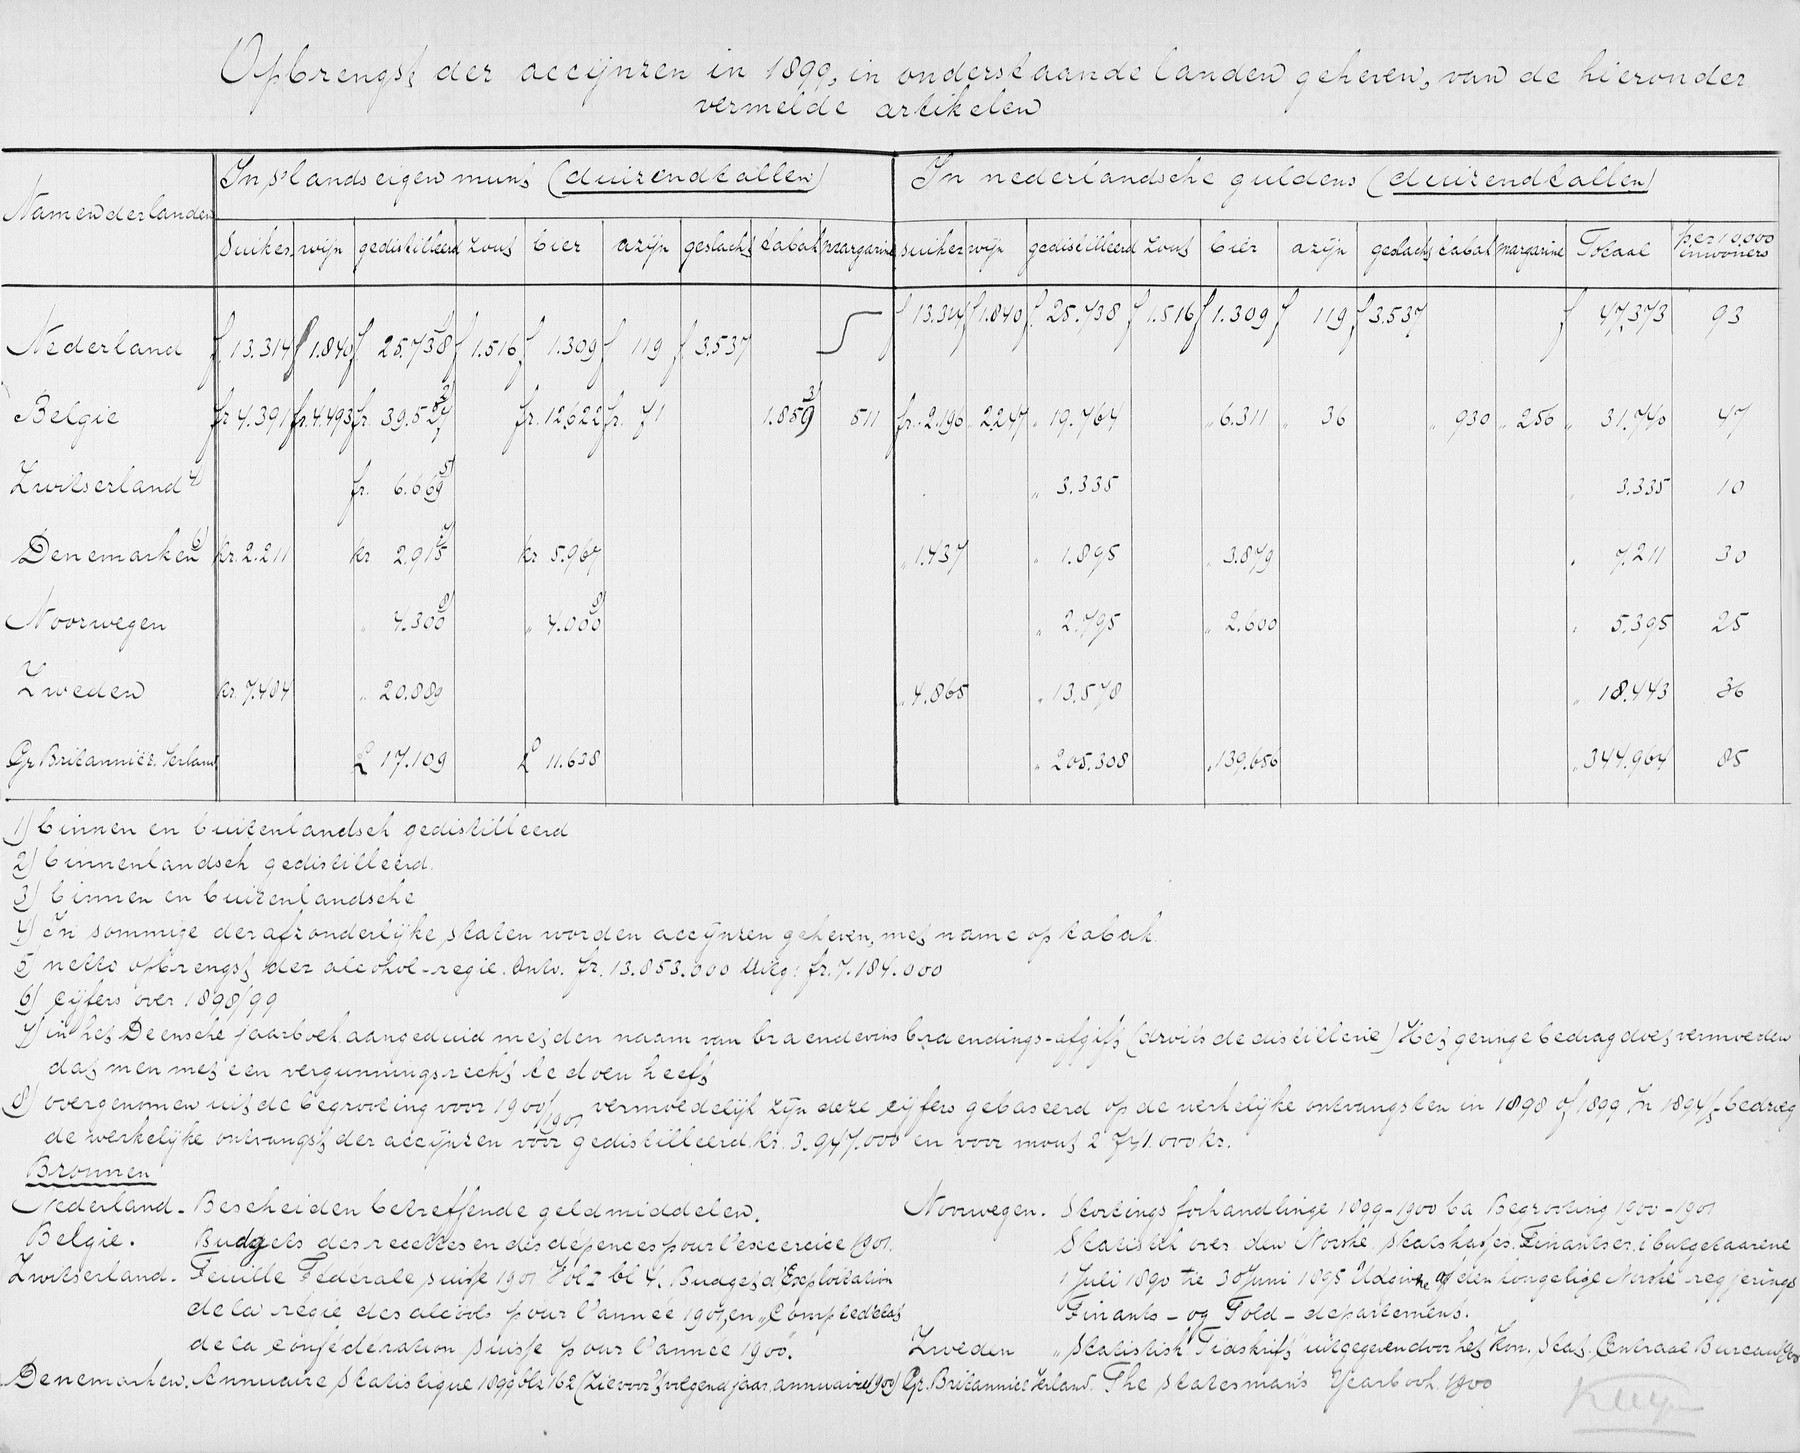 Opbrengst der accijnzen in 1899, in onderstaande landen geheven, van de hieronder
vermelde artikelen
Namen der landen
In 's lands eigen munt (duizendtallen)
In nederlandsche guldens (duizendtallen)
suiker wijn gedistilleerd zout bier azijn geslacht tabak margarine suiker wijn gedistilleerd zout bier azijn geslacht tabak margarine Totaal per 10.000 inwoners
Nederland f 13.314 f 1.840 f 25.738 1) f 1.516 f 1.309 f 119 f 3.537 f 13.314 f 1.840 f 25.738 f 1.516 f 1.309 f 119 f 3.537 f 47.373 93
Belgie fr 4.391 fr 4.493 fr. 39.527 2) fr. 12.622 fr. 71 1.859 3) 511 fr. 2.190 " 2.247 " 19.764 " 6.311 " 36 " 930 " 256 " 31.740 47
Zwitserland 4) fr. 6.669 5) " 3.335 " 3.335 10
Denemarken 6) kr. 2.211 kr 2.915 7) kr 5.967 " 1.437 " 1.895 " 3.879 " 7.211 30
Noorwegen " 4.300 8) " 4.000 8) " 2.795 " 2.600 " 5.395 25
Zweden kr. 7.484 " 20.889 " 4.865 " 13.578 " 18.443 36
Gr. Britannië e. Ierland £ 17.109 £ 11.638 " 205.308 " 139.656 " 344.964 85
1) binnen en buitenlandsch gedistilleerd
2) binnenlandsch gedistilleerd.
3) binnen en buitenlandsche
4) In sommige der afzonderlijke staten worden accijnzen geheven, met name op tabak.
5) netto opbrengst der alcohol-regie. Ontv. fr. 13.853.000 Uitg: fr. 7.184.000
6) cijfers over 1898/99
7) in het Deensche jaarboek aangeduid met den naam van braendevins braendings-afgift (droits de distillerie) Het geringe bedrag doet vermoeden
dat men met een vergunningsrecht te doen heeft
8) overgenomen uit de begrooting voor 1900/1901 vermoedelijk zijn deze cijfers gebaseerd op de werkelijke ontvangsten in 1898 of 1899 In 1894/5 bedroeg
de werkelijke ontvangst der accijnzen voor gedistilleerd kr. 3.947.000 en voor mout 2 741.000 kr.
Bronnen
Nederland - Bescheiden betreffende geldmiddelen.
Belgie. Budgets des recettes en des depences pour l'excercice 1901.
Zwitserland. Feuille Féderale suisse 1901 Vol I bl 4. Budget d'Exploitation
de la régie des alcools pour l'année 1901, en „Compte d'etat
de la conféderation suisse pour l'année 1900".
Denemarken. Annuaire statistique 1899 blz 162 (Zie voor 't volgend jaar annuaire 1900)
Noorwegen. Stortings forhandlinge 1899-1900 ba Begrooting 1900-1901
Statistik over den Norske Statskasses Finantser i butgetaarene
1 Juli 1890 tie 30 Juni 1895 Udgivne af den kongelige Norske regjerings
Finants- og Told-departement.
Zweden „Statistisk Tidskrift" uitgegeven door het Kon. Stat. Centraal Bureau 1900
Gr. Britannië e Ierland. The Statesman's Yearbook. 1900